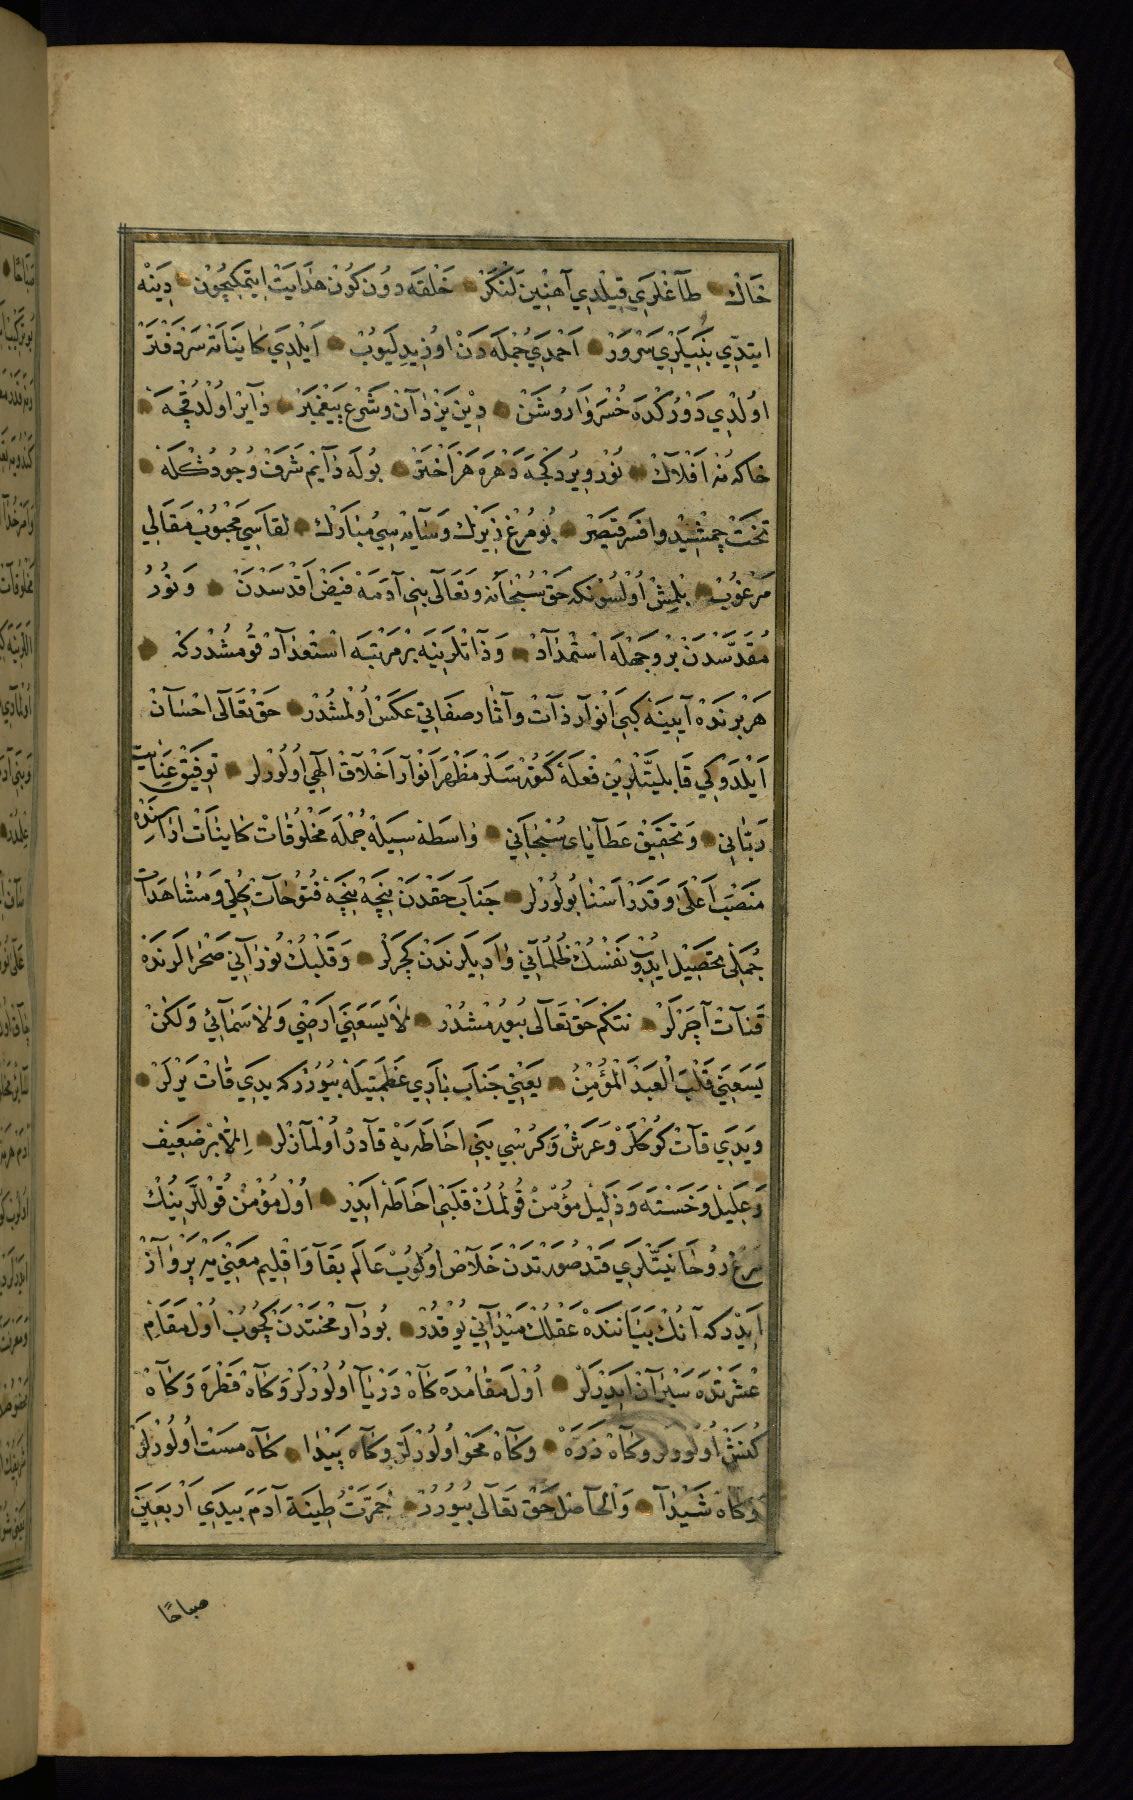 خَاكْ طَآغْلَرِي قِيلْدِي آهَنِينْ لَنْكَرْ خَلْقَه دُونْ كُونْ هِدَايَتْ اِيتْمَكِيچُونْ دِينَه
ايتدِي بِنَبِيلَرِي سَرْوَرْ اَحْمَدِي جُمْلَه دَنْ اوُزِيدِ لَيُوبْ اَيْلَدِي كَايِنَاتَه سَرْدَفْتَرْ
اوُلْدِي دَوْرُكْدَه خُسْرَوَا رُوشَنْ دِينِ يَزْدَانْ وَشَرْعِ پَيْغَمْبَرْ دَآيِرْ اوُلْدُقْچَه
خاكه نُه اَفْلَاكْ نُوْر وِيرْدِكْجَه دَهْرَه هَرْ اَخْتَرْ بُولَه دَآيِم شَرَفْ وُجُودُكْلَه
تَخْتِ جِمْشِيدْ وافَسَرِ قَيْصَرْ بُو مُرْغِ زِيرَكْ وَسَايَه سِي مُبَارَكْ لِقَاسِي مَحْبُوبْ مَقَالِي
مَرْغُوبْ بِلْمِشْ اُوْلْسُونكه حَقْ سُبْحَانَه وَتَعَالَى بَنِي آدَمَه فَيْضِ اَقْدَسْدَنْ وَنُورُ
مُقَدَّسْدَنْ بِرْ وَجْهِلَه اسْتِمْدَادْ وَذَاتْلَرِينَه بِرْ مَرْتَبَه اسْتِعْدَادْ قُومُشْدُرْكه
هَرْ بِرِنْدَه آيِينَه كِبِي اَنْوَارِ ذَاتْ وَآثَارِ صِفَاتِي عَكَسْ اُولْمِشْدُرْ حَقْ تَعَالَى احْسَانْ
اَيْلَدُوكِي قَابِلِيَّتْلَرِينْ فِعْلَه كَتُورْسَلَرْ مَظْهَرِ اَنْوَارِ اَخْلَاقِ الٰهِي اوُلُورْلَر تَوْفِيقِ عِنَايتِ
رَبَّانِي وَتَحْقِيقِ عَطَايَاىِ سُبْحَانِي وَاسِطَه سِيلَه جُمْلَه مَخْلُوقَاتْ كَايِنَاتْ ارَاسَنْدَه
مَنْصَبِ اَعْلَى وَقَدْرِ اَسْنَا بُولُورْلَر جَنَابِ حَقْدَنْ نِيچَه نِيچَه فُتُوحَاتِ كُلِّي وَمُشَاهَدَاتِ
جُمَلِي تَحْصِيل ايدُوبْ نَفْسُكْ ظُلُمَانِي وَادِيلَرِنْدَنْ كَچَرْلَرْ وَقَلْبُكْ نُورَانِي صَحْرَالَرِنْدَه
قَنَاتْ آچَرْلَرْ نِتَكِم حَقْ تَعَالَى بُيورْمِشْدُرْ لَا يَسَعُنِي اَرْضِي وَلَا سَمَائِي وَلٰكِنْ
يَسَعُنِي قَلْبُ الْعَبْدِ الْمُؤْمِنْ يَعْنِي جَنَابِ بَارِي عَظَمَتِيلَه بُيُورُرْكه يدِي قَاتْ يَرْلَرْ
وَيدِي قَاتْ كُوكْلَرْ وَعَرَشْ وَكُرْسِي بَنِي احَاطَه يَه قَادِرْ اُولْمَازْلَر اِلَّا بِرْ ضَعِيف
وَعَلِيلْ وَخَسْتَه وَذَلِيلْ مُؤْمِنْ قُولُمُكْ قَلْبِي احَاطَه ايدَرْ اُولْ مُؤْمِنْ قُوْللَرِينُكْ
مُرْغِ رُوحَانِيَّتْلَرِي قَيْدِ صُورَتْدَنْ خَلَاصْ اوُلُوبْ عَالَمِ بَقَا وَاقْلِيمِ مَعْنِي يَه پَرْوَازْ
اَيْدَرْكه آنُكْ بَيَانِنْدَه عَقْلُكْ مَيْدَانِي يُوقْدُرْ بُودَارِ مِحْنَتْدَنْ كَچُوبْ اُولْ مَقَامِ
عِشْرَتْدَه سَيْرَانْ ايدَرْلَرْ اُولْ مَقَامْدَه كَاهْ دَرْيَا اوُلُورْلَرْ وَكَاهْ قَطْرَه وَكَاهْ
كُنَشْ اُولُورْلَر وَكَاهْ ذَرَه وَكَاهْ مَحْو اوُلُورْلَرْ وَكَاه پَيْدَا كَاه مَسْت اوُلُورْلَرْ
وَكَاه شَيْدَا وَالْحَاصِلْ حَقْ تَعَالَى بُيُورُرْ خَمَّرْتُ طِينَةَ آدَمَ بِيَدِي اَرْبَعِينَ
صباحًا